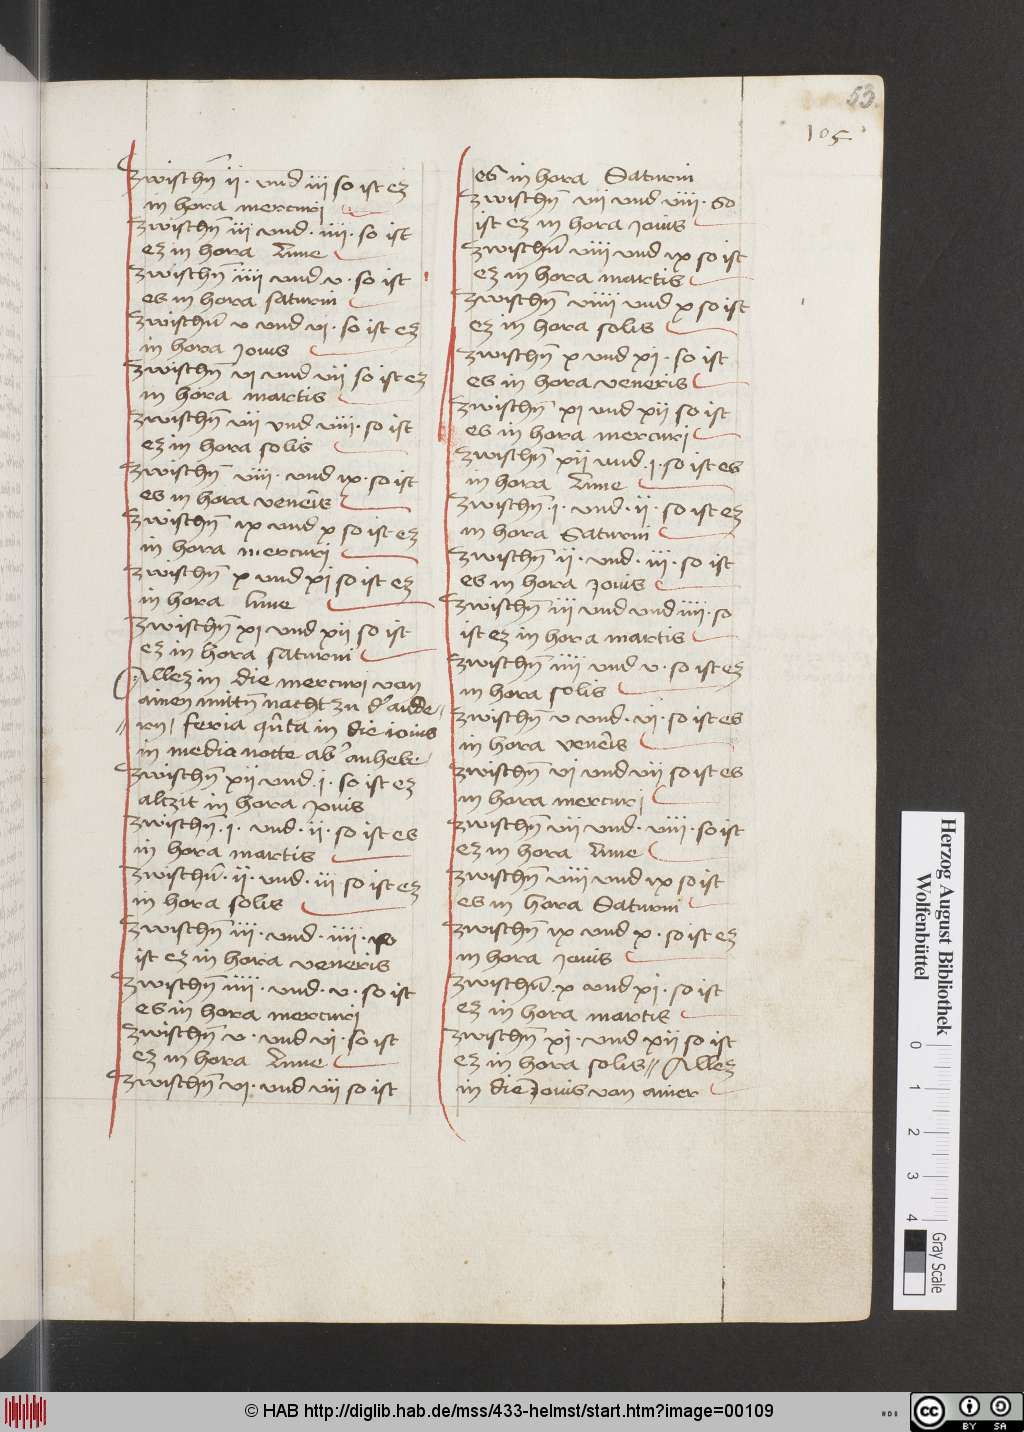 53
105
zwischn̄ ii · vnd iii so ist ez
in hora mercurj
zwischn̄ iii vnd · iiii · so ist
ez in hora Lune
zwischn̄ iiii vnd v · so ist
es in hora saturni
zwischn̄ v vnd vi · so ist ez
in hora Jouis
zwischn̄ vi vnd vii so ist ez
in hora martis
zwischn̄ vii vnd viii · so ist
ez in hora solis
zwischn̄ viii · vnd ix · so ist
es in hora ven̄eis
zwischn̄ ix vnd x so ist ez
in hora mercurj
zwischn̄ x vnd xi so ist ez
in hora lune
zwischn̄ xi vnd xii so ist
ez in hora saturni
Allez in die mercurj von
ainen mittn̄ nacht zu d' ande=
=rn / feria qn̄ta in die iouis
in media notte ab' anheb ·
zwischn̄ xii vnd · i · so ist ez
altzit in hora Jouis
zwischn̄ · i · vnd · ii · so ist es
in hora martis
zwischn̄ · ii · vnd · iii so ist ez
in hora solis
zwischn̄ iii · vnd · iiii · so
ist ez in hora veneris
zwischn̄ iiii · vnd · v · so ist
es in hora mercurj
zwischn̄ v · vnd vi · so ist
ez in hora Lune
zwischn̄ vi · vnd vii so ist
es in hora Saturni
zwischn̄ vii vnd viii · so
ist ez in hora Jouis
zwischn̄ viii vnd ix so ist
ez in hora martis
zwischn̄ viiii vnd x so ist
ez in hora solis
zwischn̄ x vnd xi · so ist
es in hora veneris
zwischn̄ xi vnd xii so ist
es in hora mercurj
zwischn̄ xii vnd · i · so ist es
in hora Lune
zwischn̄ · i · vnd · ii · so ist ez
in hora Saturni
zwischn̄ ii · vnd · iii · so ist
es in hora Jouis
zwischn̄ iii vnd vnd iiii · so
ist ez in hora martis
zwischn̄ iiii vnd v · so ist ez
in hora solis
zwischn̄ v vnd · vi · so ist es
in hora ven̄eis
zwischn̄ vi vnd vii so ist es
in hora mercurj
zwischn̄ vii vnd · viii · so ist
ez in hora Lune
zwischn̄ viii vnd ix so ist
es in hora Saturni
zwischn̄ ix vnd x · so ist ez
in hora Jouis
zwischn̄ · x vnd xi · so ist
ez in hora martis
zwischn̄ xi · vnd xii so ist
ez in hora solis // Allez
in die Jouis von ainer
Herzog August Bibliothek
Wolfenbüttel
0 1 2 3 4
Gray Scale
© HAB http://diglib.hab.de/mss/433-helmst/start.htm?image=00109
cc BY SA